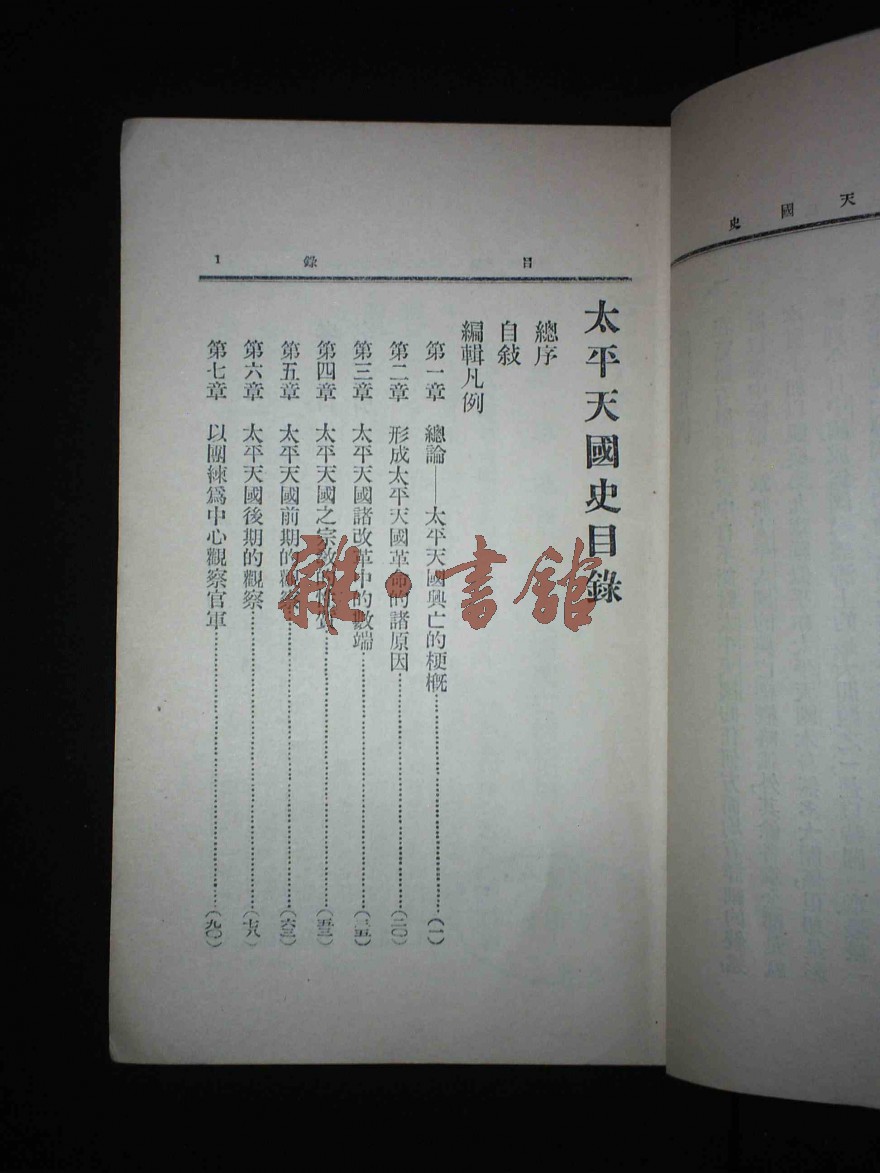 目 錄 1
太平天國史目錄
總序
自敍
編輯凡例
第一章 總論——太平天國興亡的梗概……(一)
第二章 形成太平天國革命的諸原因……(二〇)
第三章 太平天國諸改革中的數端……(三五)
第四章 太平天國之宗教的……(五三)
第五章 太平天國前期的觀察……(六三)
第六章 太平天國後期的觀察……(七八)
第七章 以團練爲中心觀察官軍……(九〇)
天國史
雜·書館